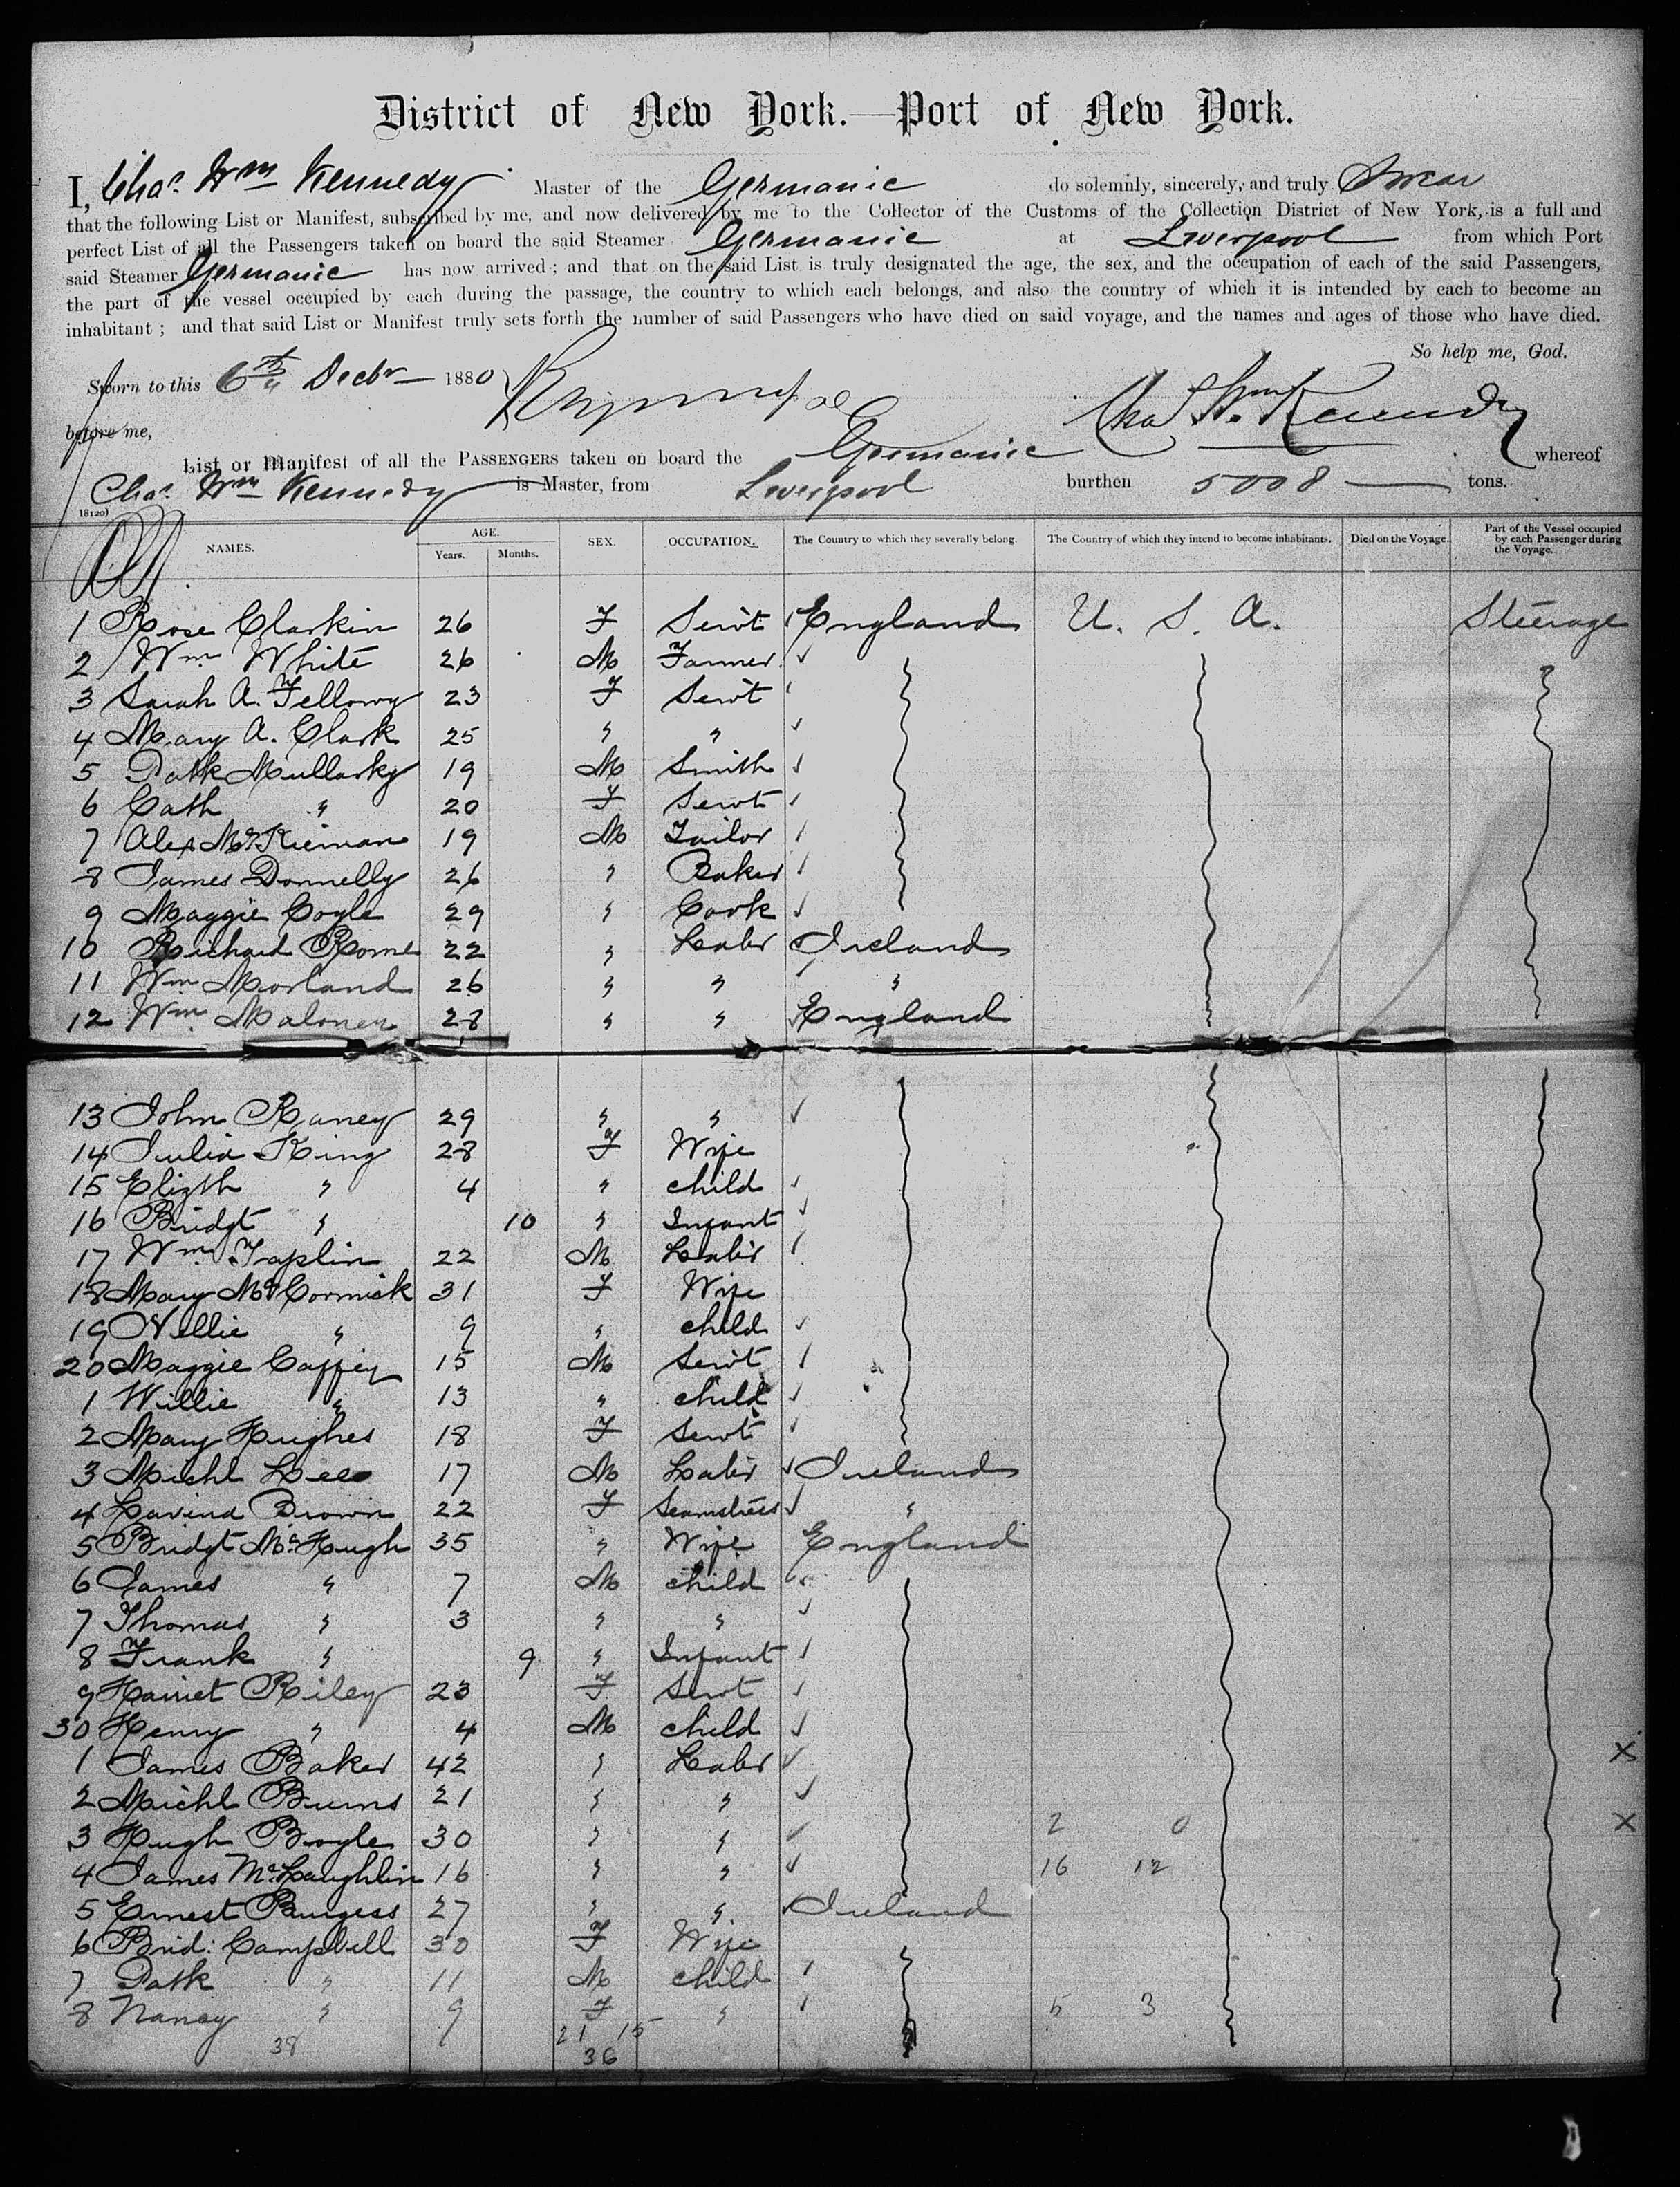 District of New York.—Port of New York.
I, Chas. Wm Kennedy Master of the Germanic do solemnly, sincerely, and truly Swear
that the following List or Manifest, subscribed by me, and now delivered by me to the Collector of the Customs of the Collection District of New York, is a full and
perfect List of all the Passengers taken on board the said Steamer Germanic at Liverpool from which Port
said Steamer Germanic has now arrived; and that on the said List is truly designated the age, the sex, and the occupation of each of the said Passengers,
the part of the vessel occupied by each during the passage, the country to which each belongs, and also the country of which it is intended by each to become an
inhabitant; and that said List or Manifest truly sets forth the number of said Passengers who have died on said voyage, and the names and ages of those who have died.
So help me, God.
Sworn to this 6th Decbr 1880
Chas Wm Kennedy
before me,
List or Manifest of all the PASSENGERS taken on board the Germanic whereof
Chas. Wm Kennedy is Master, from Liverpool burthen 5008 tons.
18120)
NAMES. AGE. Years. Months. SEX. OCCUPATION. The Country to which they severally belong. The Country of which they intend to become inhabitants. Died on the Voyage. Part of the Vessel occupied by each Passenger during the Voyage.
1 Rose Clarkin 26 F Servt England U. S. A. Steerage
2 Wm White 26 M Farmer
3 Sarah A. Fellowy 23 F Servt
4 Mary A. Clark 25 " "
5 Patk Mullarky 19 M Smith
6 Cath " 20 F Servt
7 Alex McKiernan 19 M Tailor
8 James Donnelly 26 " Baker
9 Maggie Coyle 29 " Cook
10 Richard Rome 22 " Labr Ireland
11 Wm Morland 26 " " "
12 Wm Maloney 28 " " England
13 John Raney 29 " "
14 Julia King 28 F Wife
15 Elizth " 4 " child
16 Bridgt " 10 " Infant
17 Wm Taplin 22 M Labr
18 Mary McCormick 31 F Wife
19 Nellie " 9 " child
20 Maggie Caffey 15 M Servt
1 Willie " 13 " child
2 Mary Hughes 18 F Servt
3 Michl Lee 17 M Labr Ireland
4 Lavina Brown 22 F Seamstress "
5 Bridgt McHugh 35 " Wife England
6 James " 7 M child
7 Thomas " 3 " "
8 Frank " 9 " Infant
9 Harriet Riley 23 F Servt
30 Henry " 4 M child
1 James Baker 42 " Labr x
2 Michl Burns 21 " "
3 Hugh Boyle 30 " " 2 0 x
4 James McLaughlin 16 " " 16 12
5 Ernest Burgess 27 " " Ireland
6 Brid: Campbell 30 F Wife
7 Patk " 11 M child
8 Nancy " 9 F " 5 3
38 21 15
36